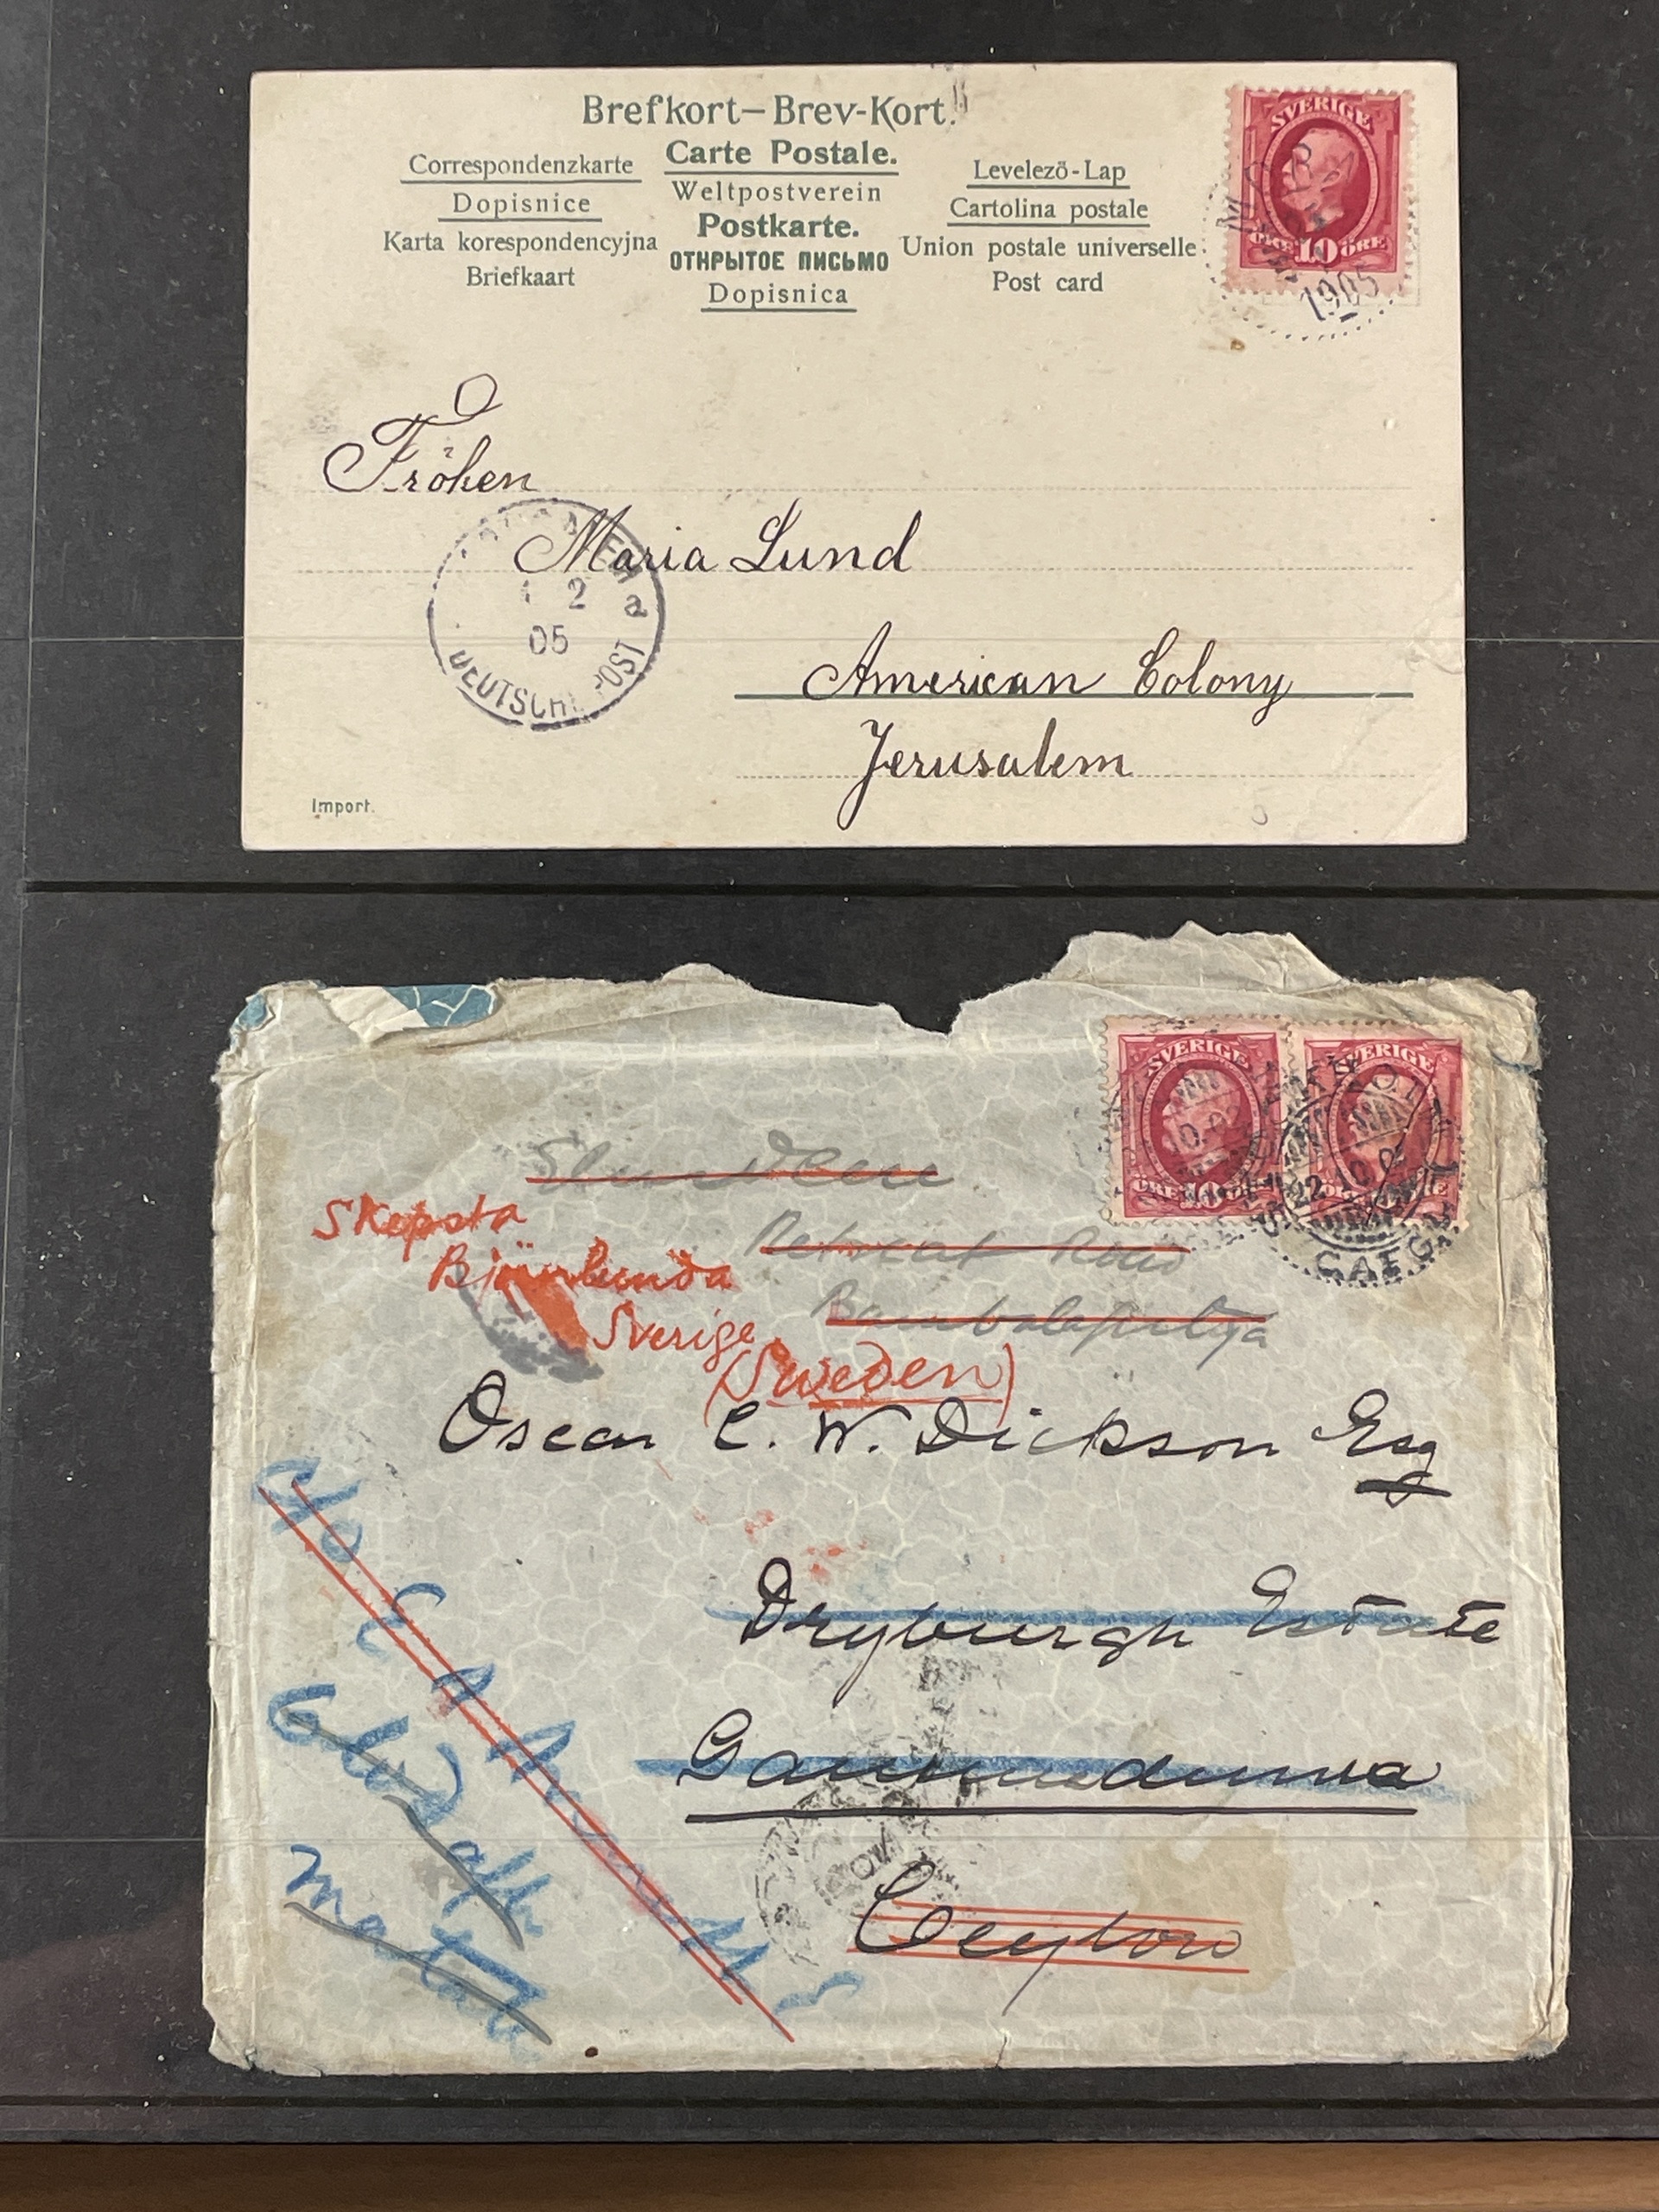 Brefkort–Brev-Kort.
Carte Postale.
Weltpostverein
Postkarte.
ОТКРЫТОЕ ПИСЬМО
Dopisnica
Correspondenzkarte
Dopisnice
Karta korespondencyjna
Briefkaart
Levelező-Lap
Cartolina postale
Union postale universelle
Post card
SVERIGE
ÖRE 10 ÖRE
1905
Fröken
Maria Lund
2
a
05
DEUTSCHE POST
American Colony
Jerusalem
Import.
SVERIGE
ÖRE 10
SVERIGE
22 10
Retreat Road
Bambalapitya
Skepsta
Björnlunda
Sverige
(Sweden)
Oscar C. W. Dickson Esq
Dryburgh Estate
Ceylon